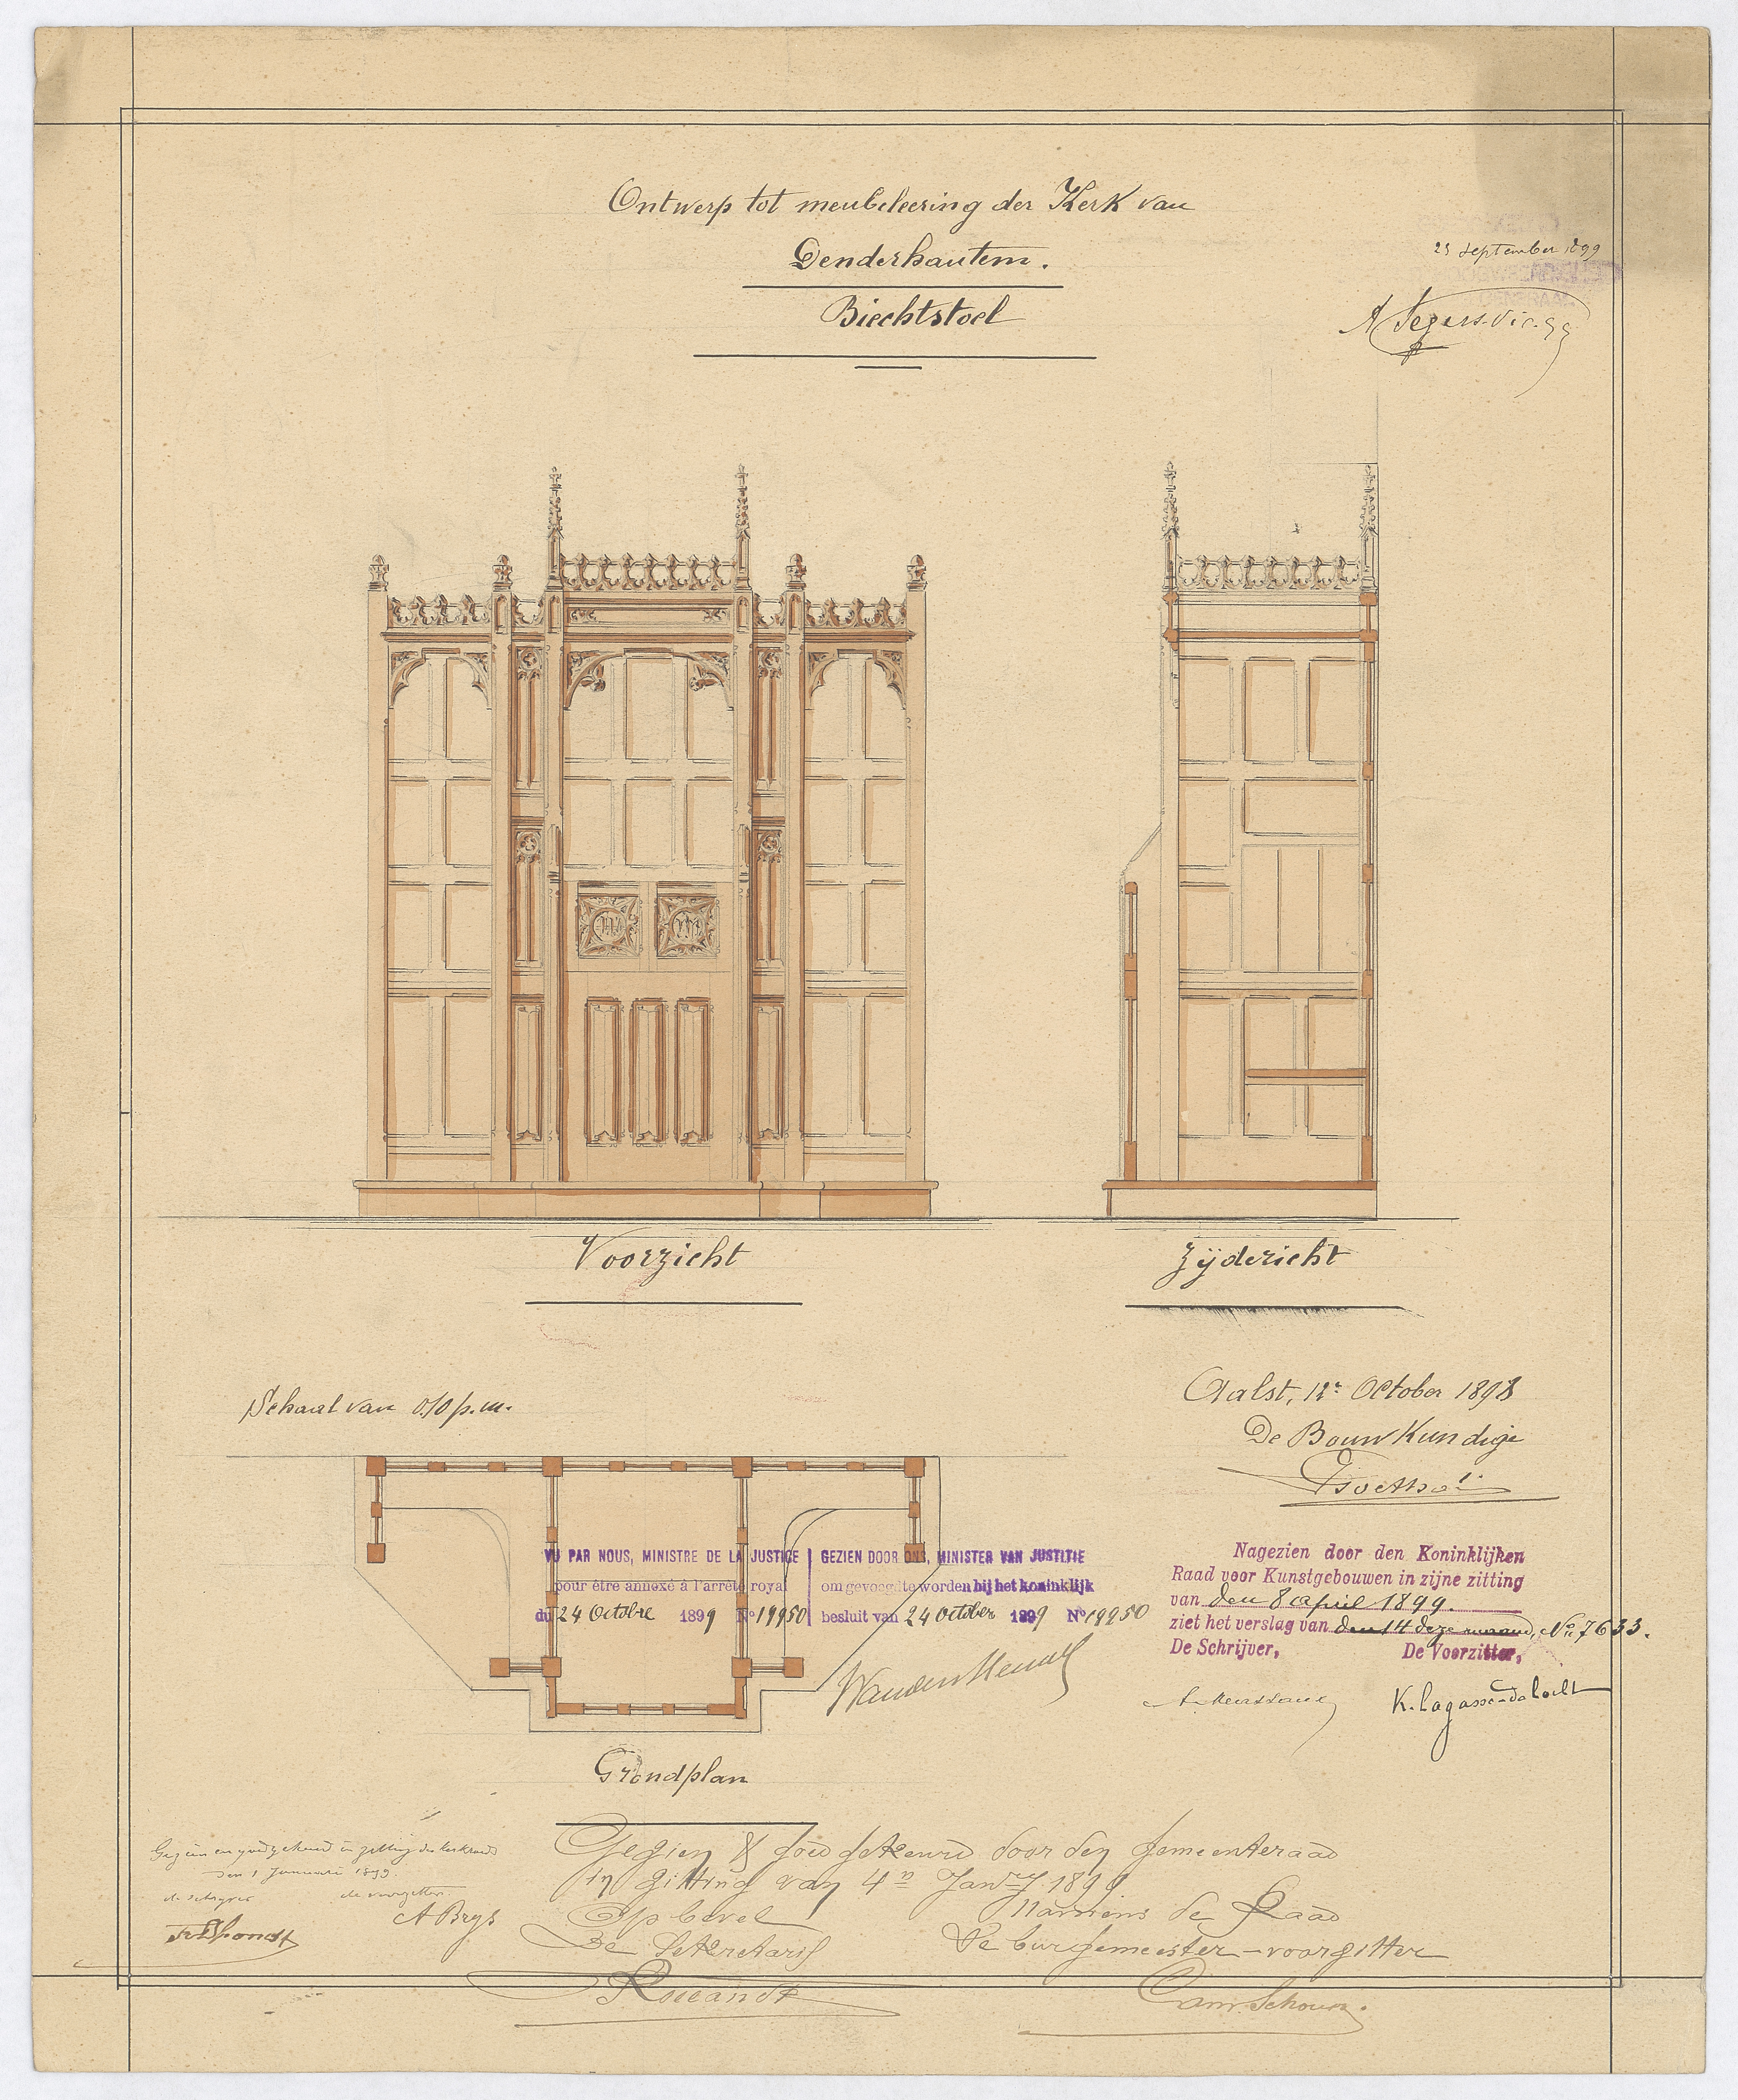 Ontwerp tot meubeleering der Kerk van
Denderhautem.
Biechtstoel
23 september 1899
A Segers. Vic. gg
Voorzicht
Zijdezicht
Schaal van 0.10 p.m.
Aalst, 12e October 1898
De Bouwkundige
VU PAR NOUS, MINISTRE DE LA JUSTICE
pour être annexé à l'arrêté royal
du 24 Octobre 1899 No 19950
GEZIEN DOOR ONS, MINISTER VAN JUSTITIE
om gevoegd te worden bij het koninklijk
besluit van 24 October 1899 No 19950
Nagezien door den Koninklijken
Raad voor Kunstgebouwen in zijne zitting
van den 8 april 1899.
ziet het verslag van den 14 deze maand, No 7633.
De Schrijver, De Voorzitter,
K. Lagasse-de Locht
Grondplan
Gezien en goedgekeurd in zitting der kerkraad
den 1 Januari 1899.
de schryver de voorzitter
A Brys
Gezien & goedgekeurd door den gemeenteraad
in zitting van 4n Jany 1899
Op bevel Namens de Raad
De Sekretaris De burgemeester-voorzitter